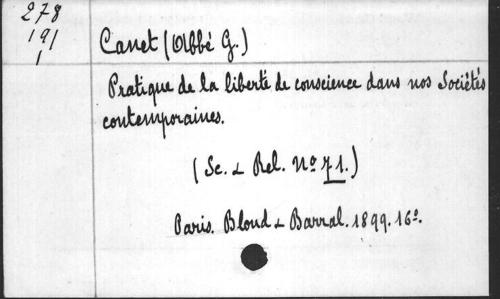 278
191
1
Canet (Abbé G.)
Pratique de la liberté de conscience dans nos Sociétés
contemporaines.
(Sc. & Rel. No 71.)
Paris. Bloud & Barral. 1899. 16o.